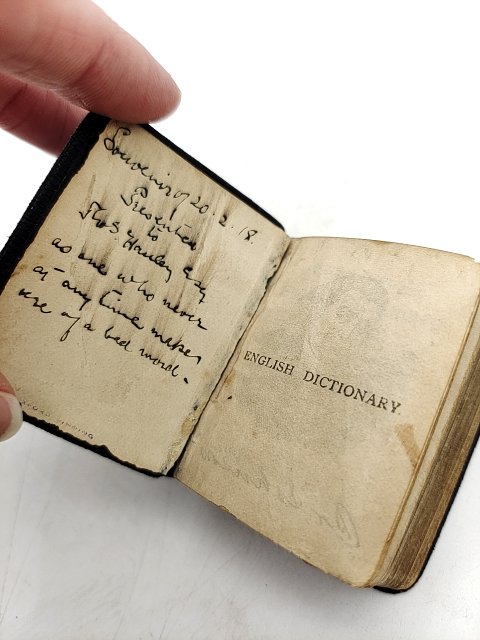 Souvenir of 20.2.18.
Presented
to
Thos. Hanley
as one who never
at any time makes
use of a bad word.
ENGLISH DICTIONARY